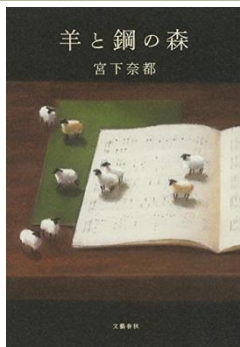 羊と鋼の森
宮下奈都
文藝春秋